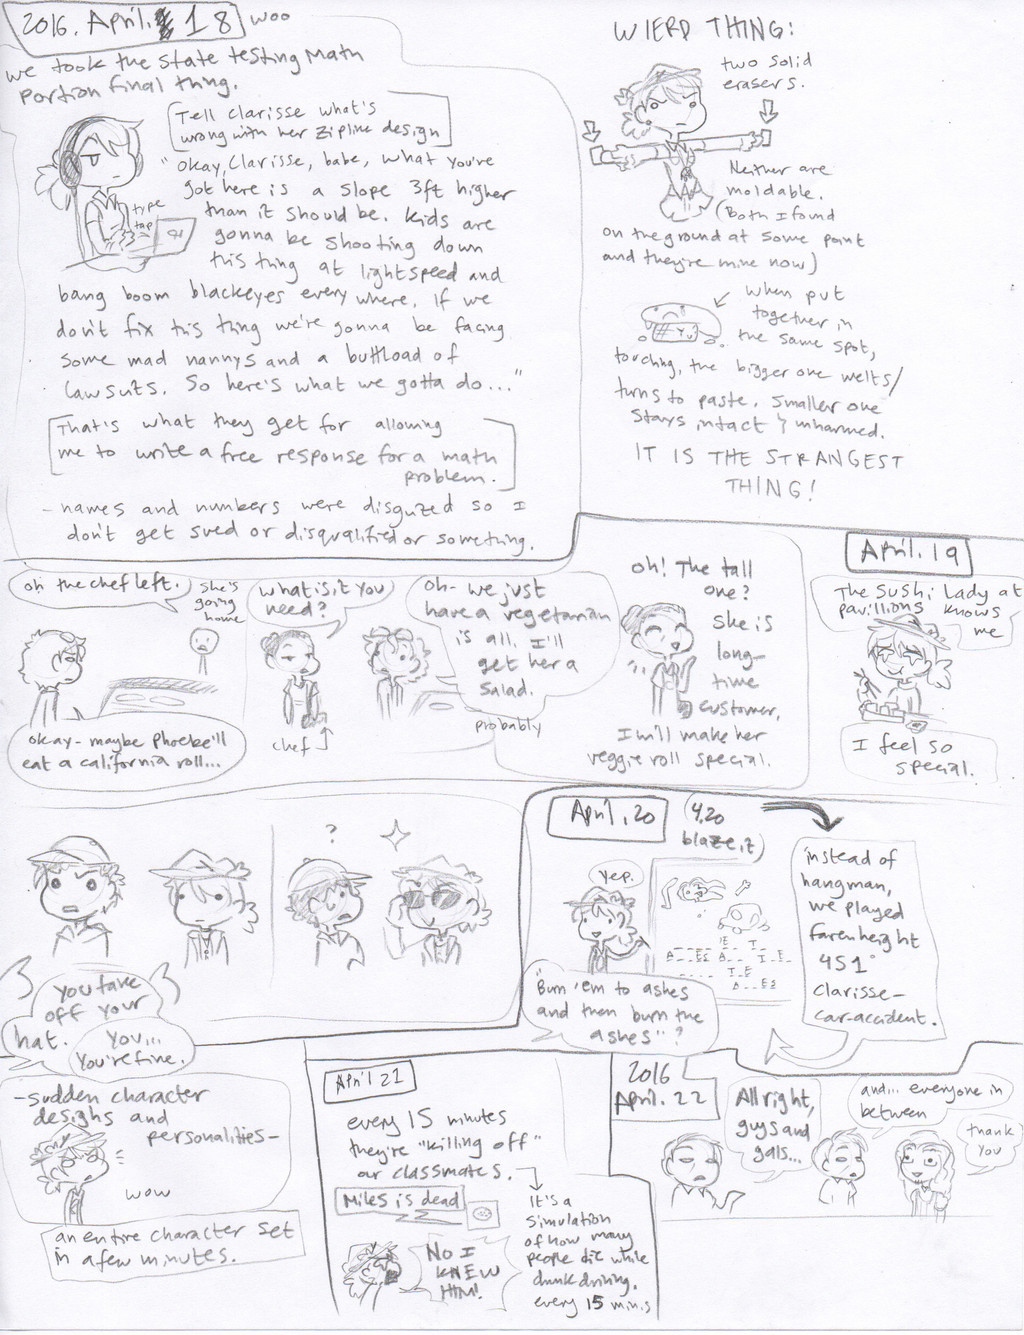 2016. April. 18 woo
we took the state testing math
portion final thing.
Tell Clarisse what's
wrong with her zipline design
"okay, Clarisse, babe, what you've
got here is a slope 3ft higher
than it should be. Kids are
gonna be shooting down
this thing at lightspeed and
bang boom blackeyes everywhere. If we
don't fix this thing we're gonna be facing
some mad nannys and a buttload of
lawsuits. So here's what we gotta do..."
type
tap
That's what they get for allowing
me to write a free response for a math
problem.
- names and numbers were disguized so I
don't get sued or disqualified or something.
WIERD THING:
two solid
erasers.
Neither are
moldable.
(Both I found
on the ground at some point
and they're mine now)
when put
together in
the same spot,
touching, the bigger one welts/
turns to paste. Smaller one
stays intact & unharmed.
IT IS THE STRANGEST
THING!
oh the chef left.
she's
going
home
okay- maybe Phoebe'll
eat a california roll...
what is it you
need?
chef
oh- we just
have a vegetarian
is all. I'll
get her a
salad.
probably
oh! The tall
one?
she is
long-
time
customer,
I will make her
veggie roll special.
April. 19
The sushi Lady at
pavillions knows
me
I feel so
special.
you take
off your
hat.
you...
you're fine.
?
-sudden character
designs and
personalities-
wow
an entire character set
in a few minutes.
April, 20
(4.20
blaze it)
yep.
"Burn 'em to ashes
and then burn the
ashes"?
instead of
hangman,
we played
farenheight
451°
Clarisse-
car-accident.
April 21
every 15 minutes
they're "killing off"
our classmates.
Miles is dead
NO I
KNEW
HIM!
It's a
simulation
of how many
people die while
drunk driving.
every 15 mins
2016
April. 22
Allright,
guys and
gals...
and... everyone in
between
thank
you